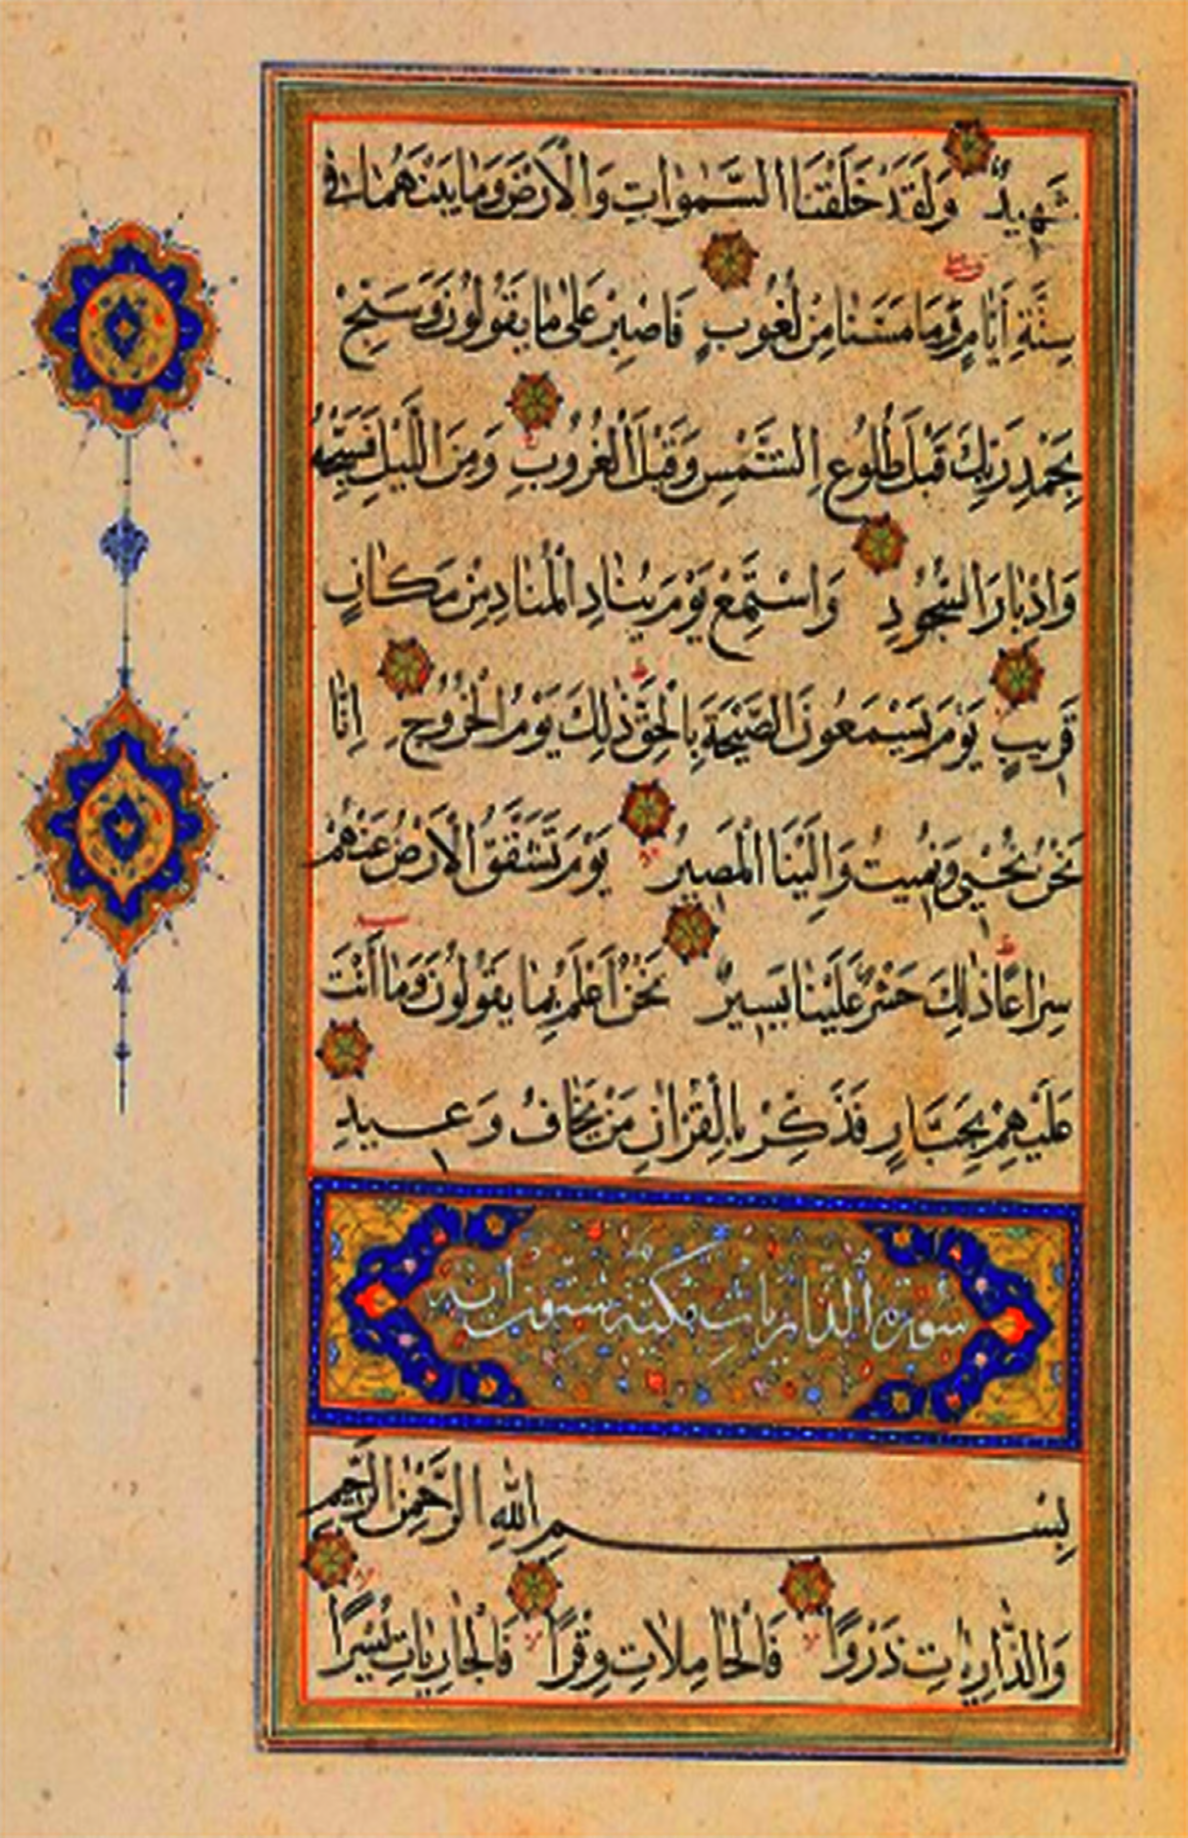 شَهِيدٌ وَلَقَدْ خَلَقْنَا السَّمٰوَاتِ وَالْاَرْضَ وَمَا بَيْنَهُمَا فِى
سِتَّةِ اَيَّامٍ وَمَا مَسَّنَا مِنْ لُغُوبٍ فَاصْبِرْ عَلٰى مَا يَقُولُونَ وَسَبِّحْ
بِحَمْدِ رَبِّكَ قَبْلَ طُلُوعِ الشَّمْسِ وَقَبْلَ الْغُرُوبِ وَمِنَ اللَّيْلِ فَسَبِّحْهُ
وَاَدْبَارَ السُّجُودِ وَاسْتَمِعْ يَوْمَ يُنَادِ الْمُنَادِ مِنْ مَكَانٍ
قَرِيبٍ يَوْمَ يَسْمَعُونَ الصَّيْحَةَ بِالْحَقِّ ذٰلِكَ يَوْمُ الْخُرُوجِ اِنَّا
نَحْنُ نُحْيِى وَنُمِيتُ وَاِلَيْنَا الْمَصِيرُ يَوْمَ تَشَقَّقُ الْاَرْضُ عَنْهُمْ
سِرَاعًا ذٰلِكَ حَشْرٌ عَلَيْنَا يَسِيرٌ نَحْنُ اَعْلَمُ بِمَا يَقُولُونَ وَمَا اَنْتَ
عَلَيْهِمْ بِجَبَّارٍ فَذَكِّرْ بِالْقُرْاٰنِ مَنْ يَخَافُ وَعِيدِ
سورة الذاريات مكية ستون اية
بِسْمِ اللّٰهِ الرَّحْمٰنِ الرَّحِيمِ
وَالذَّارِيَاتِ ذَرْوًا فَالْحَامِلَاتِ وِقْرًا فَالْجَارِيَاتِ يُسْرًا